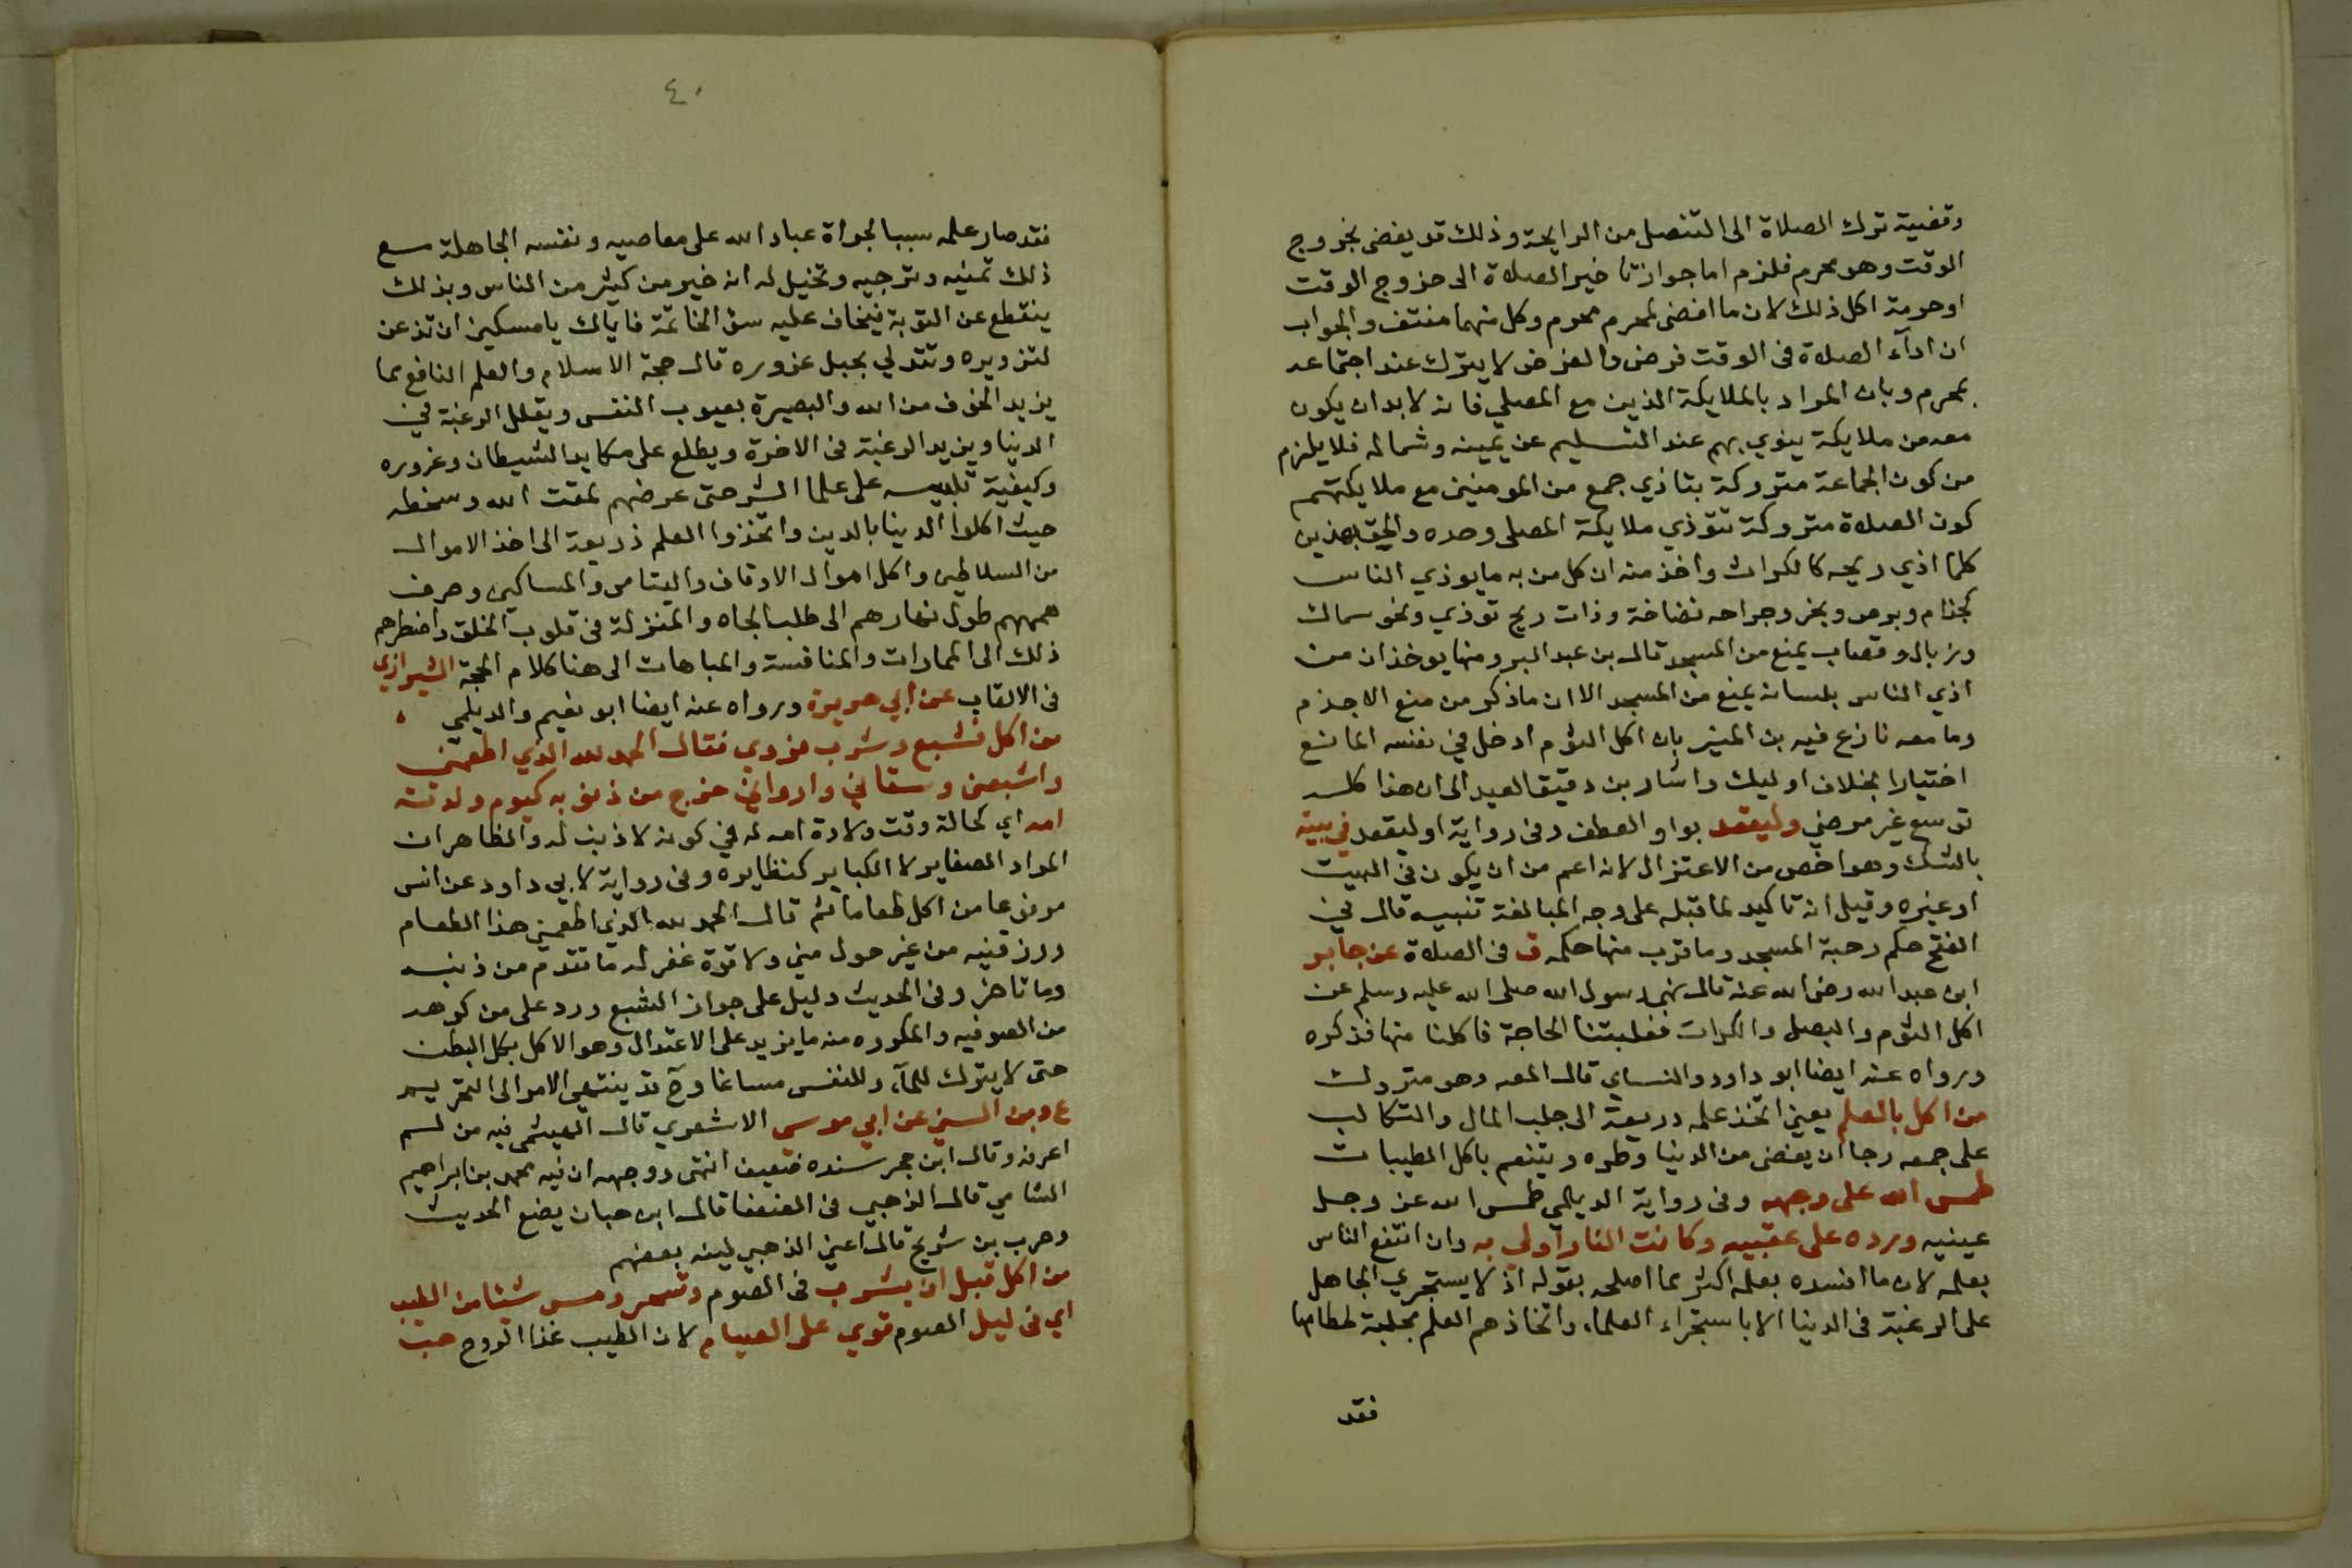 وقضية ترك الصلاة الى التنصل من الرايحة وذلك قد يفضى لخروج
الوقت وهو محرم فلزم اما جواز تاخير الصلاة الى خروج الوقت
او حرمة اكل ذلك لان ما افضى لمحرم محرم وكل منهما منتف والجواب
ان اداء الصلاة فى الوقت فرض والفرض لا يترك عند اجتماعه
بمحرم وبان المراد بالملايكة الذين مع المصلي فانه لا بد ان يكون
معه من ملايكة ينوي بهم عند التسليم عن يمينه وشماله فلا يلزم
من كون الجماعة متروكة بتاذي جمع من المومنين مع ملايكتهم
كون الصلاة متروكة بتؤذي ملايكة المصلى وحده والحق بهذين
كلما اذي ريحه كالكراث واخذ منه ان كل من به ما يوذي الناس
كجذام وبرص وبخر وجراحه نضاخة وذات ريح توذي ونحو سماك
وزبال وقصاب يمنع من المسجد قال بن عبد البر ومنها يوخذ ان من
اذي الناس بلسانه يمنع من المسجد الا ان ما ذكر من منع الاجذم
وما معه نازع فيه بن المنير بان اكل الثوم ادخل في نفسه المانع
اختيارا بخلاف اوليك واشار بن دقيق العيد الى ان هذا كله
توسع غير مرضي وليقعد بواو العطف وفى رواية او ليقعد في بيته
بالشك وهو اخص من الاعتزال لانه اعم من ان يكون فى البيت
او غيره وقيل انه تاكيد لما قبله على وجه المبالغة تنبيه قال في
الفتح حكم رحبة المسجد وما قرب منها حكمه ق فى الصلاة عن جابر
ابن عبد الله رضى الله عنه قال نهى رسول الله صلى الله عليه وسلم عن
اكل الثوم والبصل والكراث فغلبتنا الحاجة فاكلنا منها فذكره
ورواه عنه ايضا ابو داود والنساي قال المص وهو متروك
من اكل بالعلم يعني اتخذ علمه دريعة الى جلب المال والتكالب
على جمعه رجا ان يقضى من الدنيا وطره ويتنعم باكل الطيبات
طمس الله على وجهه وفى رواية الديلمي طمس الله عز وجل
عينيه ورده على عقبيه وكانت النار اولى به وان انتفع الناس
بعلمه لان ما افسده بعلمه اكثر مما اصلحه بقوله اذ لا يستجري الجاهل
على الرغبة فى الدنيا الا باستجراء العلماء واتخاذهم العلم مجلبة لحطامها
فقد
٤٠
فقد صار علمه سببا لجراة عباد الله على معاصيه ونفسه الجاهلة مع
ذلك تمنيه وترجيه وتخيل له انه خير من كثير من الناس وبذلك
ينقطع عن التوبة فيخاف عليه سؤ الخاتمة فاياك يا مسكين ان تذعن
لتزويره وتتدلي بحبل غروره قال حجة الاسلام والعلم النافع ما
يزيد الخوف من الله والبصيرة بعيوب النفس ويقلل الرغبة في
الدنيا ويزيد الرغبة فى الاخرة ويطلع على مكايد الشيطان وغروره
وكيفية تلبيسه على علما الشر حتى عرضهم لمقت الله وسخطه
حيث اكلوا الدينا بالدين واتخذوا العلم ذريعة الى اخذ الاموال
من السلاطين واكل اموال الاوقاف واليتامى والمساكين وصرف
هممهم طول نهارهم الى طلب الجاه والمنزلة فى قلوب الخلق واضطرهم
ذلك الى الممارات والمنافسة والمباهات الى هنا كلام الحجة الشيرازي
فى الالقاب عن ابي هريرة ورواه عنه ايضا ابو نعيم والديلمي
من اكل فشبع وشرب فروي فقال الحمد لله الذي اطعمنى
واشبعنى وسقاني وارواني خرج من ذنوبه كيوم ولدته
امه اي كحالة وقت ولادة امه له في كونه لا ذنب له والظاهر ان
المراد الصغاير لا الكباير كنظايره وفى رواية لابي داود عن انس
مرفوعا من اكل طعاما ثم قال الحمد لله الذي اطعمني هذا الطعام
ورزقنيه من غير حول مني ولا قوة غفر له ما تقدم من ذنبه
وما تاخر وفى الحديث دليل على جواز الشبع ورد على من كرهه
من الصوفيه والمكروه منه ما يزيد على الاعتدال وهو الاكل بكل البطن
حتى لا يترك للماء وللنفس مساغا وح قد ينتهي الامر الى التحريم
ع وبن السني عن ابي موسى الاشعري قال الهيثمى فيه من لم
اعرفه وقال ابن حجر سنده ضعيف انتهى ووجهه ان فيه محمد بن ابراهيم
الشامي قال الذهبي فى الضعفا قال ابن حبان يضع الحديث
وحرب بن شريح قال اعني الذهبي لينه بعضهم
من اكل قبل ان يشرب فى الصوم وتسحر ومس شيئا من الطيب
اي فى ليل الصوم قوي على الصيام لان الطيب غذا الروح هب